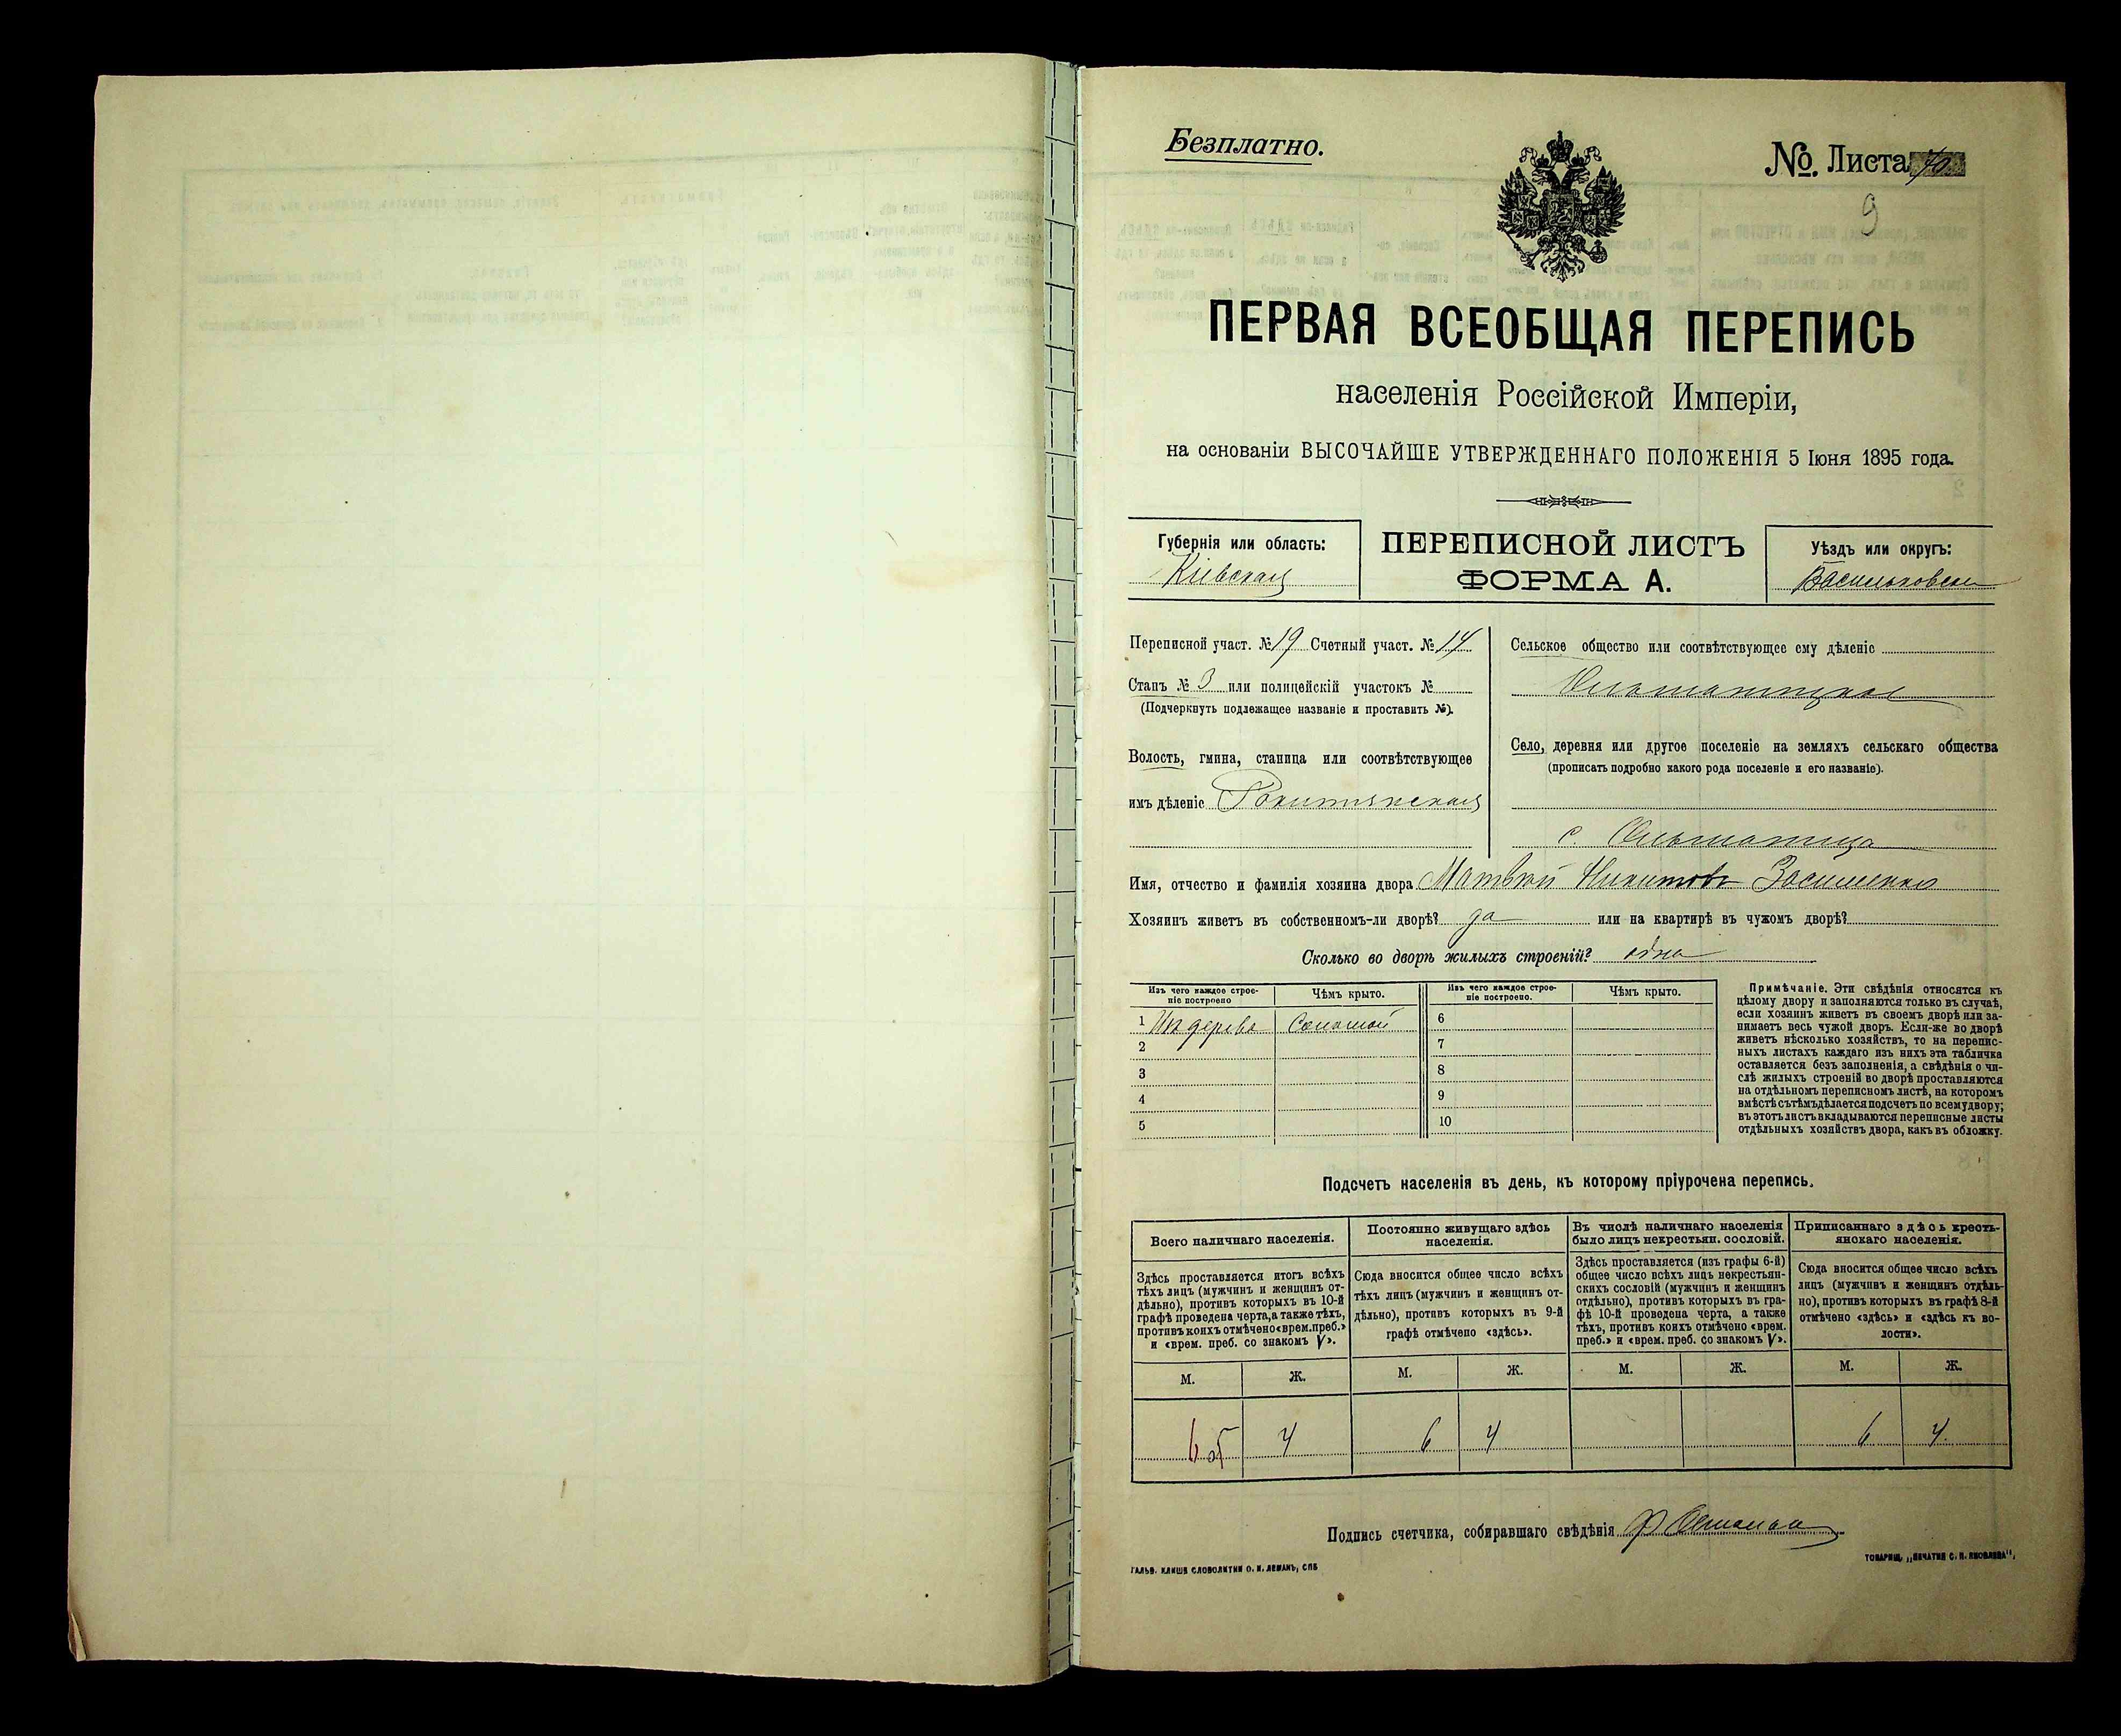 Безплатно.
№. Листа
9
ПЕРВАЯ ВСЕОБЩАЯ ПЕРЕПИСЬ
населенія Россійской Имперіи,
на основаніи ВЫСОЧАЙШЕ УТВЕРЖДЕННАГО ПОЛОЖЕНІЯ 5 Іюня 1895 года.
Губернія или область:
Кіевская
ПЕРЕПИСНОЙ ЛИСТЪ
ФОРМА А.
Уѣздъ или округъ:
Васильковск
Переписной участ. № 19 Счетный участ. № 14
Станъ № 3 или полицейскій участокъ №
(Подчеркнуть подлежащее названіе и проставить №).
Волость, гмина, станица или соотвѣтствующее
имъ дѣленіе Рокитянская
Сельское общество или соотвѣтствующее ему дѣленіе
Ольшаницкое
Село, деревня или другое поселеніе на земляхъ сельскаго общества
(прописать подробно какого рода поселеніе и его названіе).
с. Ольшаница
Имя, отчество и фамилія хозяина двора Матвѣй Никитовъ
Хозяинъ живетъ въ собственномъ-ли дворѣ? да или на квартирѣ въ чужомъ дворѣ?
Сколько во дворѣ жилыхъ строеній? одна
Изъ чего каждое строе-
ніе построено
Чѣмъ крыто.
1 Из дерева Соломой
2
3
4
5
Изъ чего каждое строе-
ніе построено.
Чѣмъ крыто.
6
7
8
9
10
Примѣчаніе. Эти свѣдѣнія относятся къ
цѣлому двору и заполняются только въ случаѣ,
если хозяинъ живетъ въ своемъ дворѣ или за-
нимаетъ весь чужой дворъ. Если-же во дворѣ
живетъ нѣсколько хозяйствъ, то на перепис-
ныхъ листахъ каждаго изъ нихъ эта табличка
оставляется безъ заполненія, а свѣдѣнія о чи-
слѣ жилыхъ строеній во дворѣ проставляются
на отдѣльномъ переписномъ листѣ, на которомъ
вмѣстѣ съ тѣмъ дѣлается подсчетъ по всему двору;
въ этотъ листъ вкладываются переписные листы
отдѣльныхъ хозяйствъ двора, какъ въ обложку.
Подсчетъ населенія въ день, къ которому пріурочена перепись.
Всего наличнаго населенія.
Здѣсь проставляется итогъ всѣхъ
тѣхъ лицъ (мужчинъ и женщинъ от-
дѣльно), противъ которыхъ въ 10-й
графѣ проведена черта, а также тѣхъ,
противъ коихъ отмѣчено «врем. преб.»
и «врем. преб. со знакомъ V».
М. Ж.
6 5 4
Постоянно живущаго здѣсь
населенія.
Сюда вносится общее число всѣхъ
тѣхъ лицъ (мужчинъ и женщинъ от-
дѣльно), противъ которыхъ въ 9-й
графѣ отмѣчено «здѣсь».
М. Ж.
6 4
Въ числѣ наличнаго населенія
было лицъ некрестьян. сословій.
Здѣсь проставляется (изъ графы 6-й)
общее число всѣхъ лицъ некрестьян-
скихъ сословій (мужчинъ и женщинъ
отдѣльно), противъ которыхъ въ гра-
фѣ 10-й проведена черта, а также
тѣхъ, противъ коихъ отмѣчено «врем.
преб.» и «врем. преб. со знакомъ V».
М. Ж.
Приписаннаго здѣсь кресть-
янскаго населенія.
Сюда вносится общее число всѣхъ
лицъ (мужчинъ и женщинъ отдѣль-
но), противъ которыхъ въ графѣ 8-й
отмѣчено «здѣсь» и «здѣсь къ во-
лости».
М. Ж.
6 4
Подпись счетчика, собиравшаго свѣдѣнія
ГАЛЬВ. КЛИШЕ СЛОВОЛИТНИ О. И. ЛЕМАНЪ, СПБ
ТОВАРИЩ. „ПЕЧАТНЯ С. П. ЯКОВЛЕВА“,